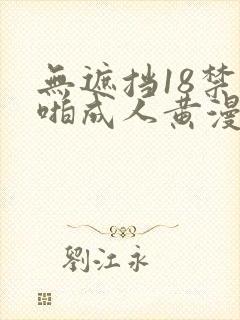 無遮挡18禁
啪成人黄漫
劉江永